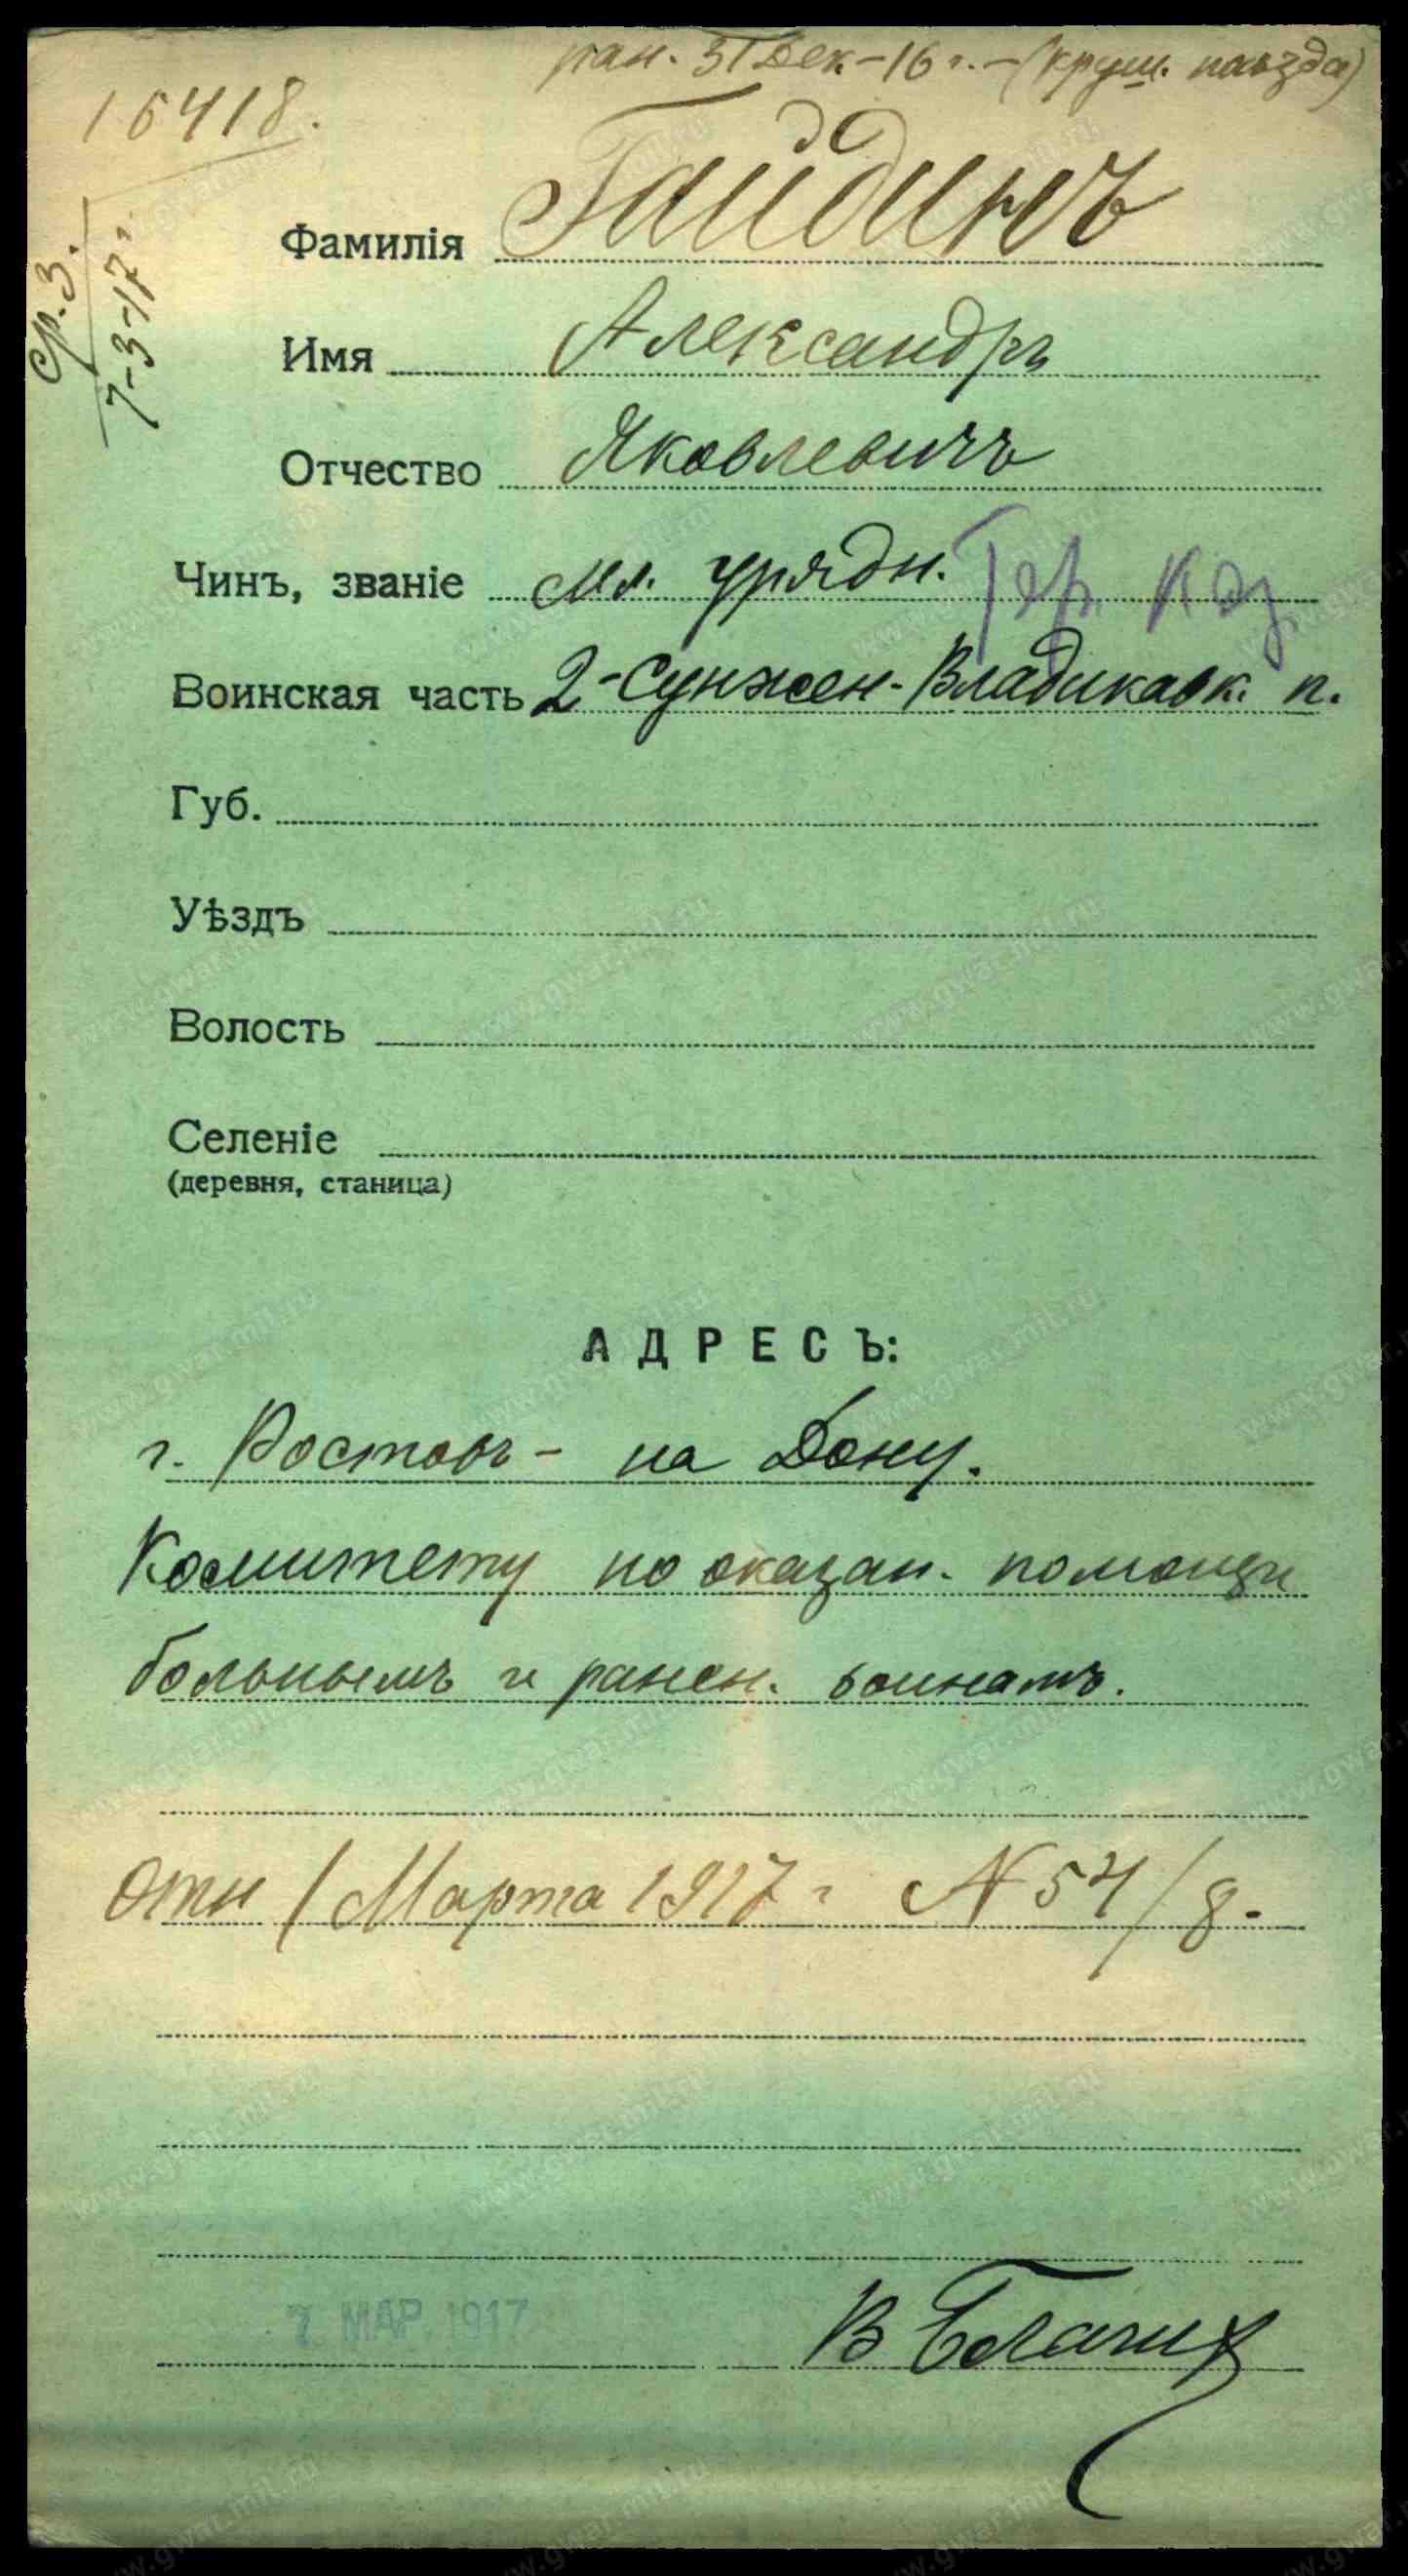 ран. 31 Дек.-16 г. - (круш. поѣзда)
16418.
Ср. 3.
7-3-17 г.
Фамилія Гайдинъ
Имя Александръ
Отчество Яковлевичъ
Чинъ, званіе Мл. урядн. Тер. Каз
Воинская часть 2-Сунжен-Владикавк. п.
Губ.
Уѣздъ
Волость
Селеніе
(деревня, станица)
АДРЕСЪ:
г. Ростовъ - на Дону.
Комитету по оказан. помощи
больнымъ и ранен. воинамъ.
Отн 1 Марта 1917 г N 54/8.
7 МАР 1917
В
www.gwar.mil.ru